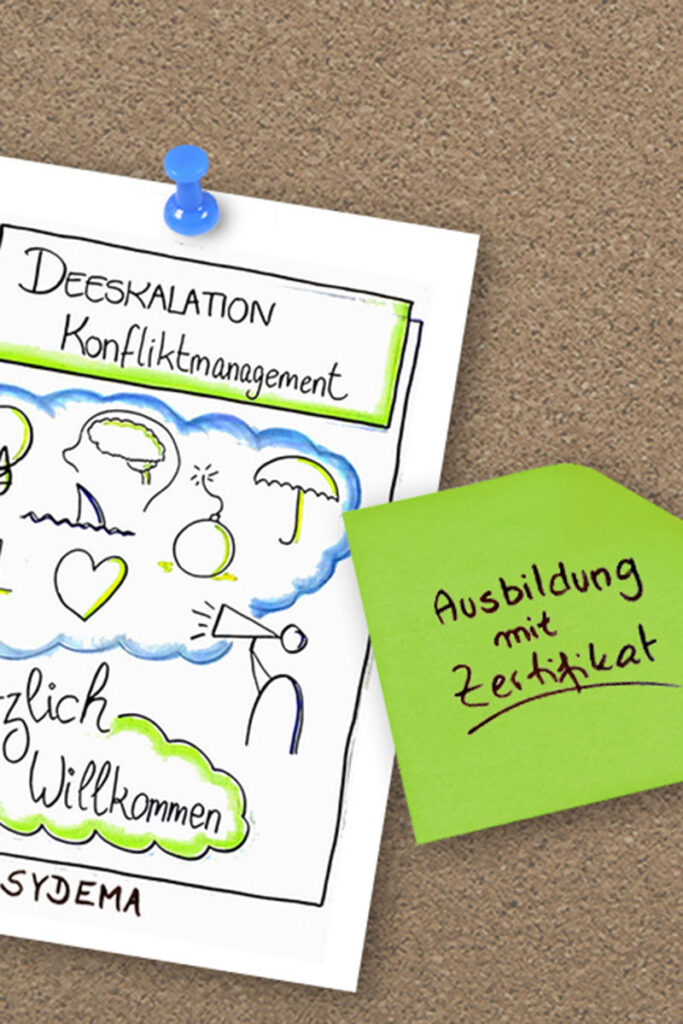 DEESKALATION
Konfliktmanagement
zlich
Willkommen
SYDEMA
Ausbildung
mit
Zertifikat